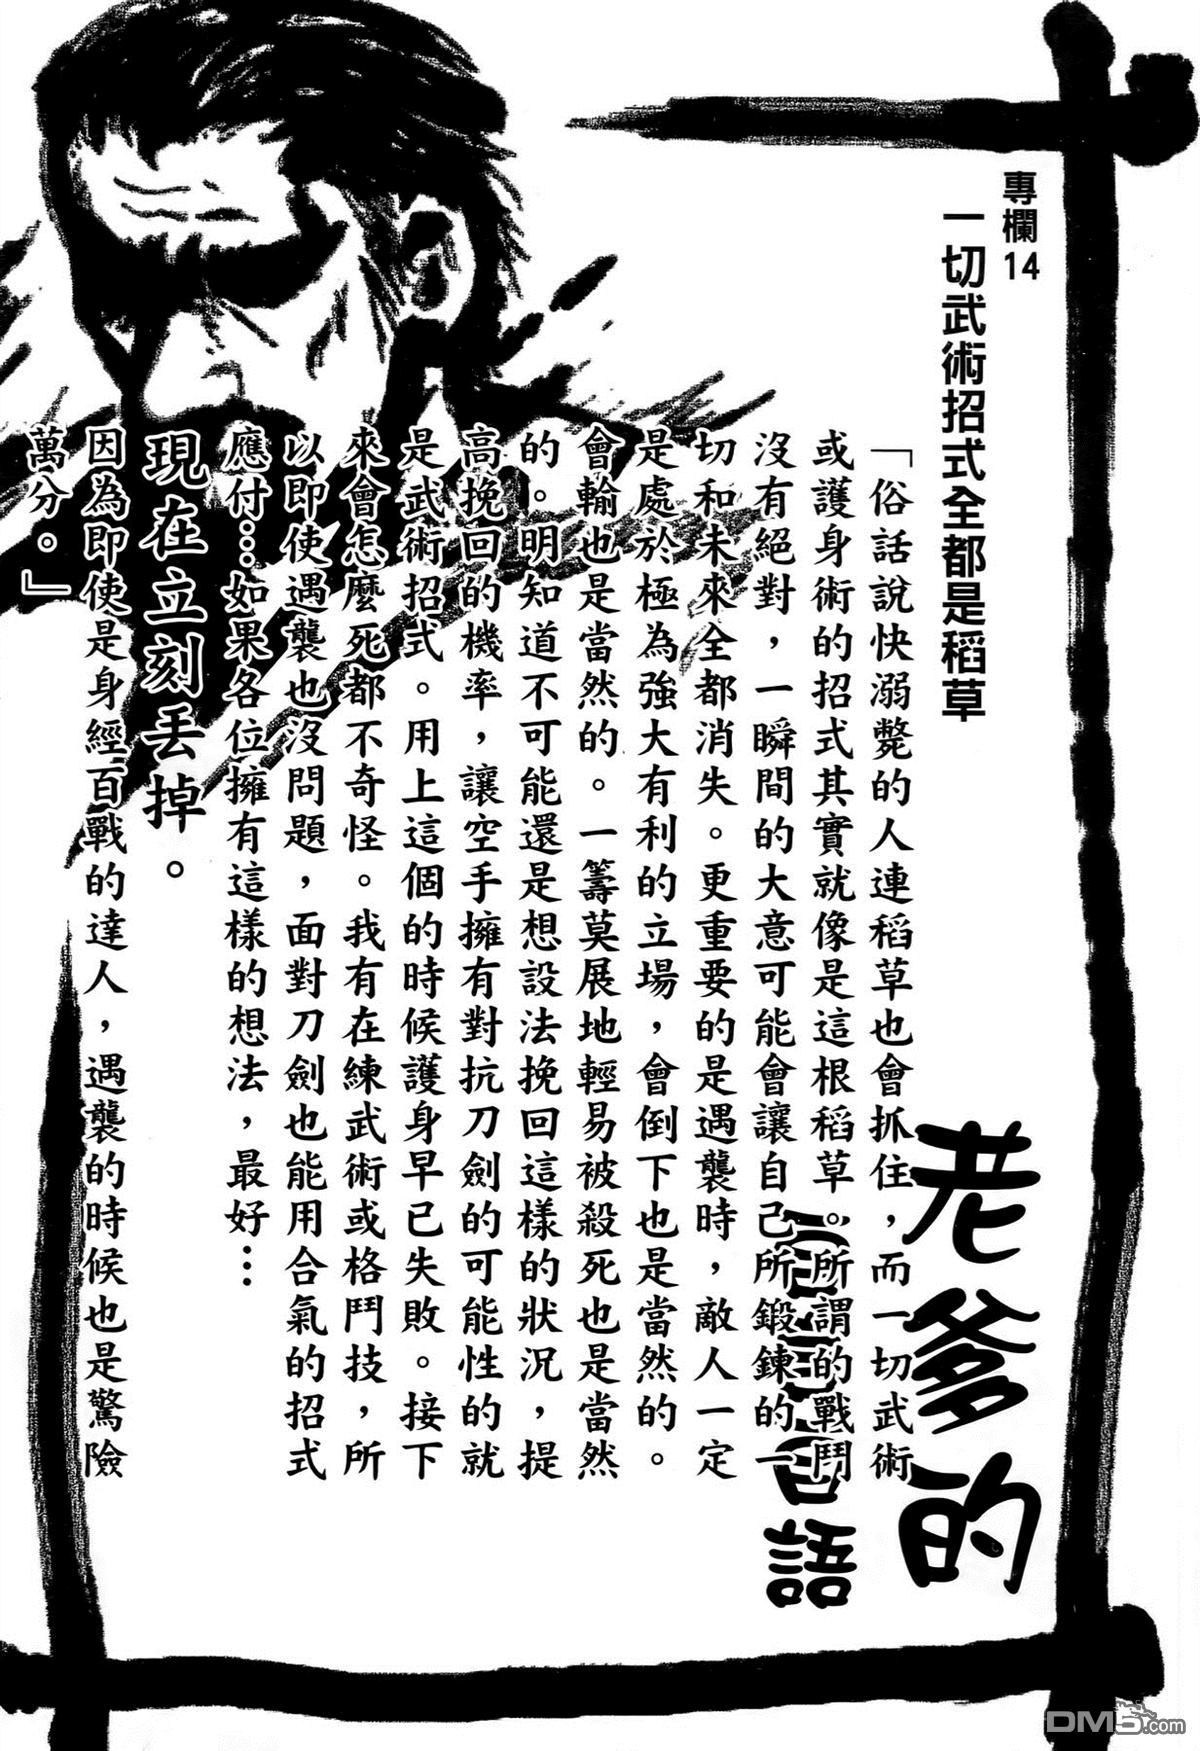 專欄14
一切武術招式全都是稻草
老爹的
語
「俗話說快溺斃的人連稻草也會抓住，而一切武術
或護身術的招式其實就像是這根稻草。所謂的戰鬥
沒有絕對，一瞬間的大意可能會讓自己所鍛鍊的一
切和未來全都消失。更重要的是遇襲時，敵人一定
是處於極為強大有利的立場，會倒下也是當然的。
會輸也是當然的。一籌莫展地輕易被殺死也是當然
的。明知道不可能還是想設法挽回這樣的狀況，提
高挽回的機率，讓空手擁有對抗刀劍的可能性的就
是武術招式。用上這個的時候護身早已失敗。接下
來會怎麼死都不奇怪。我有在練武術或格鬥技，所
以即使遇襲也沒問題，面對刀劍也能用合氣的招式
應付…如果各位擁有這樣的想法，最好…
現在立刻丟掉。
因為即使是身經百戰的達人，遇襲的時候也是驚險
萬分。」
DM5.com